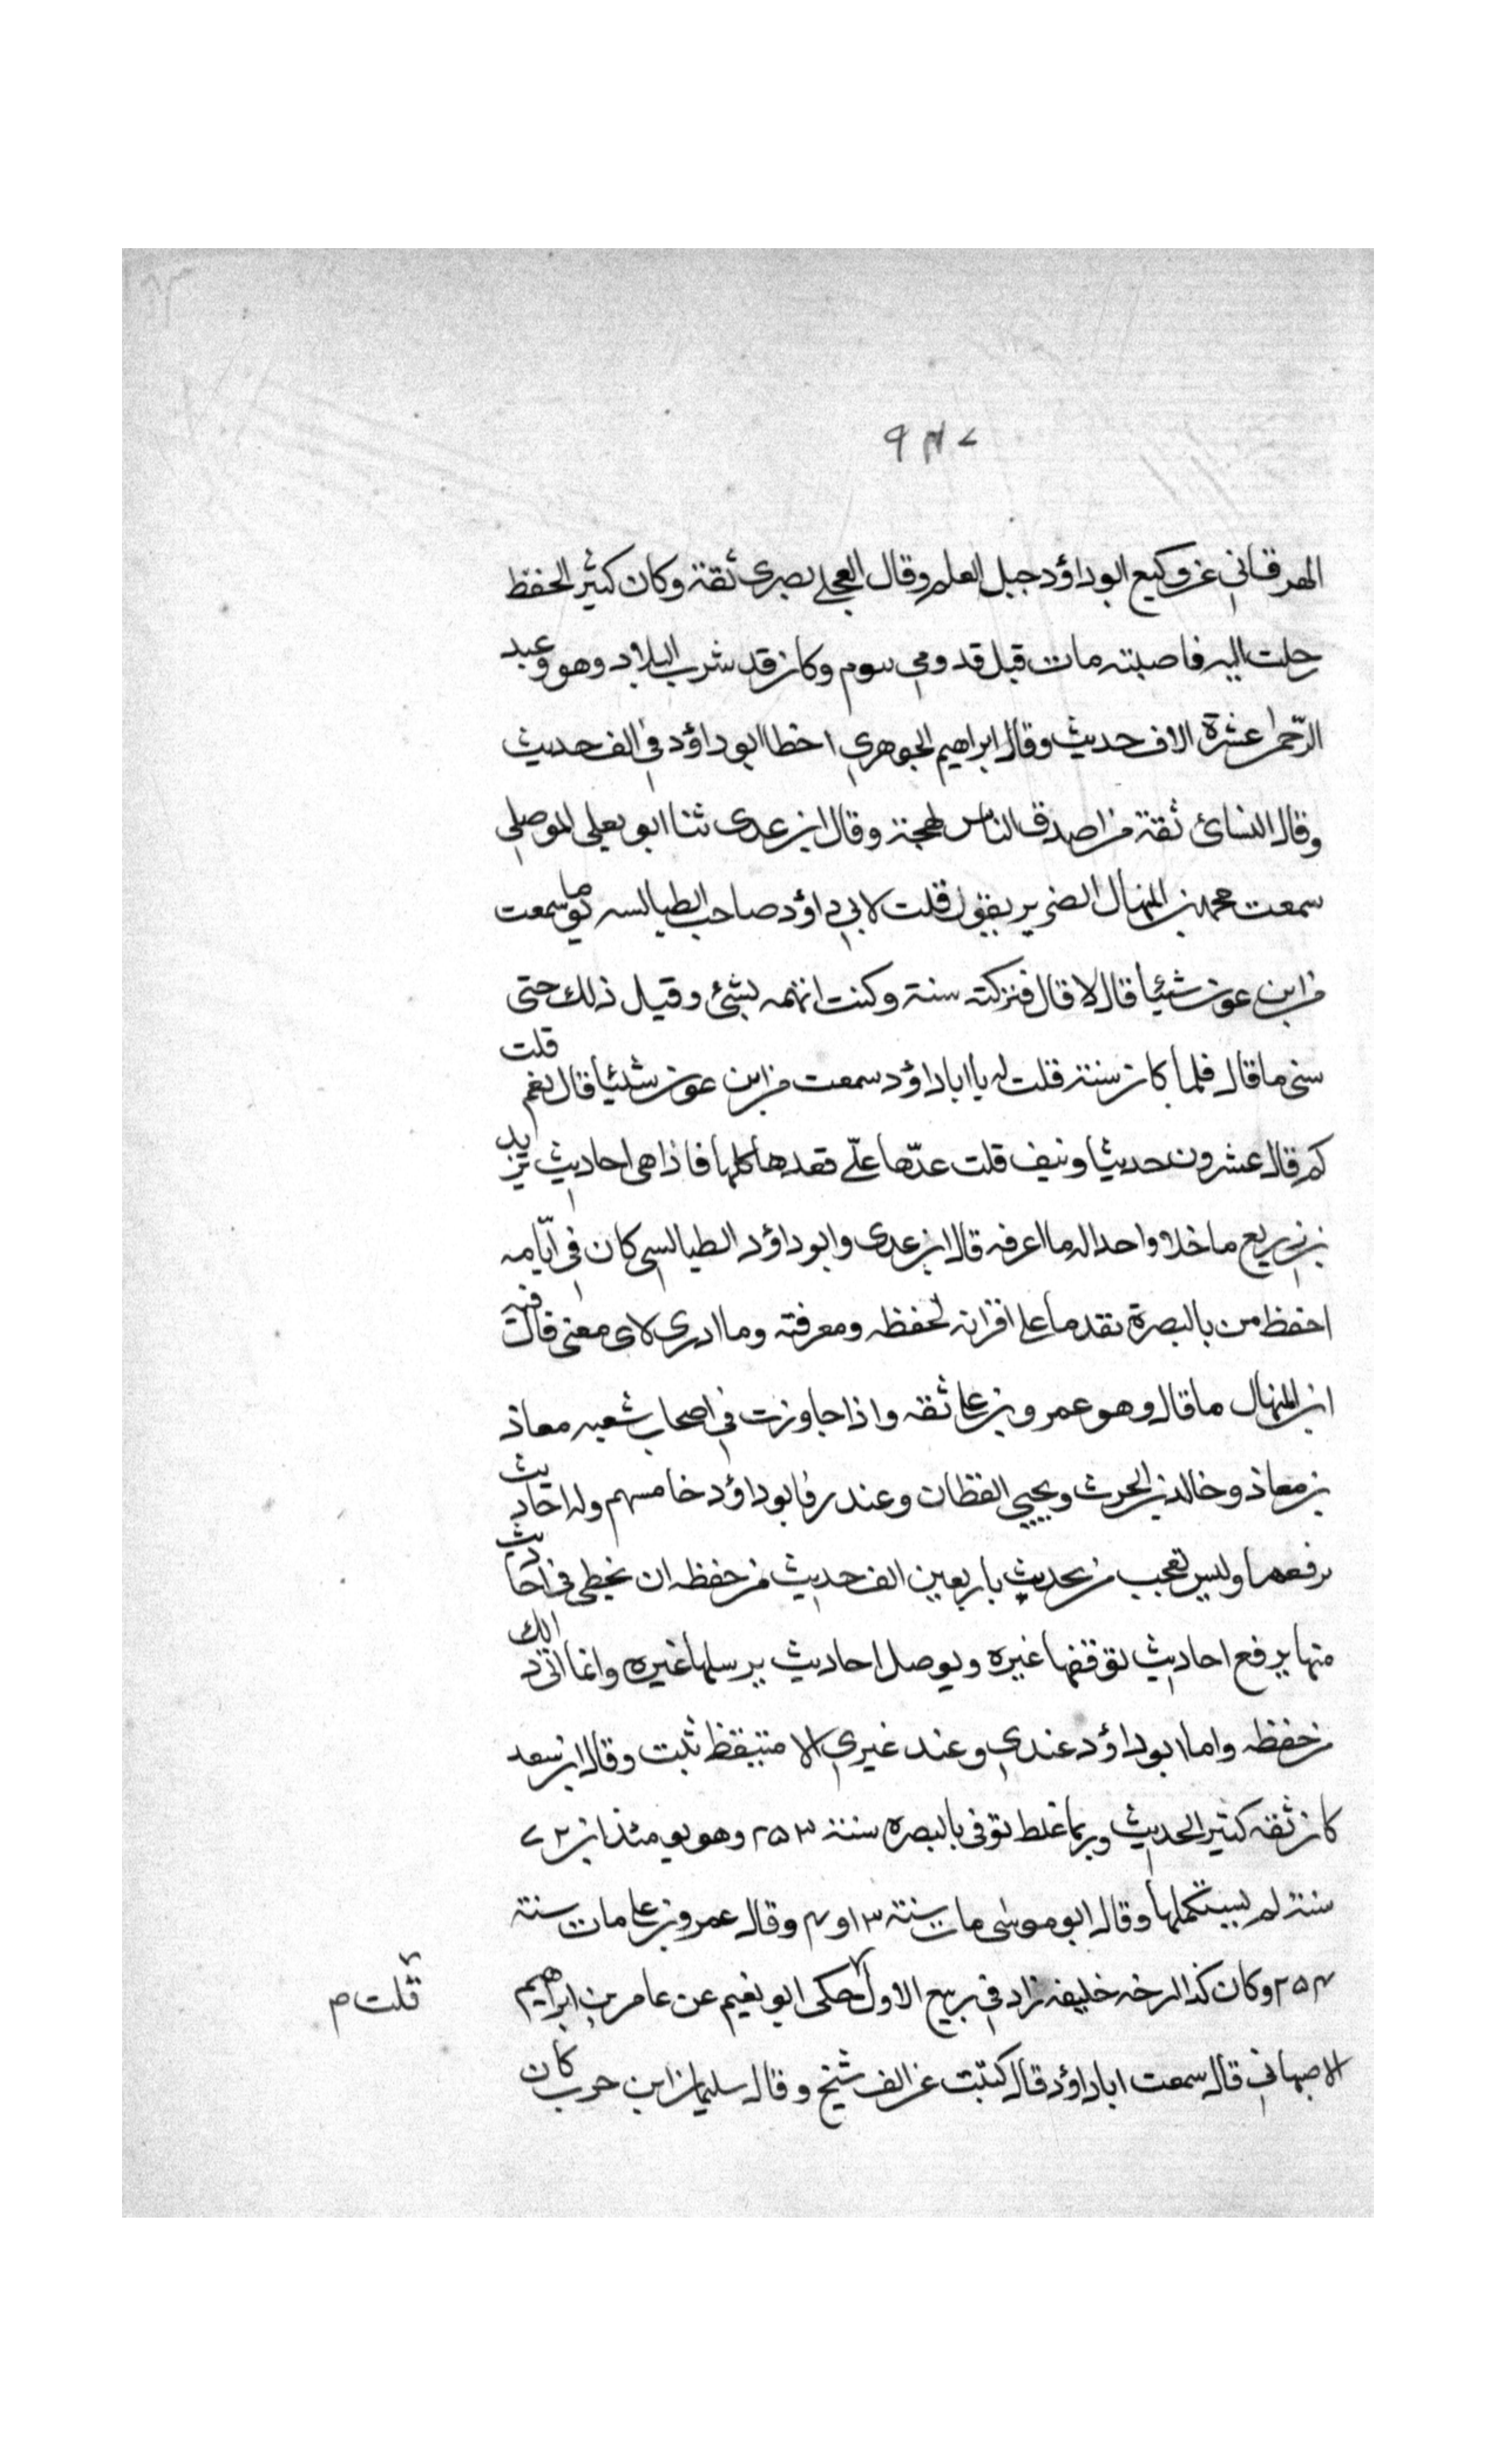 ٩٤٧
الهرقانى عن وكيع ابو داؤد جبل العلم وقال العجلى بصرى ثقة وكان كثير الحفظ
رحلت اليه فاصبته مات قبل قدومى بيوم وكان قد شرب البلادر وهو وعبد
الرحمن عشرة الاف حديث وقال ابراهيم الجوهري اخطا ابو داؤد في الف حديث
وقال النسائ ثقة من اصدق الناس لهجة وقال ابن عدى ثنا ابو يعلى الموصلي
سمعت محمد بن المنهال الضرير يقول قلت لابي داؤد صاحب الطيالسه يوما سمعت
من ابن عون شيئا قال لا قال فتركته سنة وكنت اتهمه بشئ وقيل ذلك حتى
سنى ما قال فلما كان سنة قلت له يا ابا داؤد سمعت من ابن عون شيئا قال نعم قلت
كم قال عشرون حديثا ونيف قلت عدّها علّي فعدها كلها فاذا هى احاديث يزيد
بن زريع ما خلا واحدا له ما اعرفه قال ابن عدى وابو داؤد الطيالسي كان في ايّامه
احفظ من بالبصرة مقدما على اقرانه لحفظه ومعرفته وما ادرى لاى معنى قال فيه
ابن المنهال ما قال وهو عمرو بن على ثقه واذا جاوزت في اصحاب شعبه معاذ
بن معاذ وخالد بن الحرث ويحيي القطان وغندر فابو داؤد خامسهم وله احاديث
يرفعها وليس تعجب من يحدث باربعين الف حديث من حفظه ان يخطى في احاديث
منها يرفع احاديث توقفها غيره ويوصل احاديث يرسلها غيره وانما اتى ذلك
من حفظه واما ابو داؤد عندي وعند غيري الا متيقظ ثبت وقال ابن سعد
كان ثقه كثير الحديث وربما غلط توفى بالبصره سنة ٢٥٣ وهو يومئذ ابن ٧٢
سنة لم يستكملها وقال ابو موسى مات سنة ٣ او ٤ وقال عمرو بن على مات سنة
٢٥٤ وكان كذا ارخه خليفه زاد في ربيع الاول حكى ابو نعيم عن عامر بن ابراهيم
قلت م
الاصبهاني قال سمعت ابا داؤد قال كتبت عن الف شيخ وقال سليمان ابن حرب كان